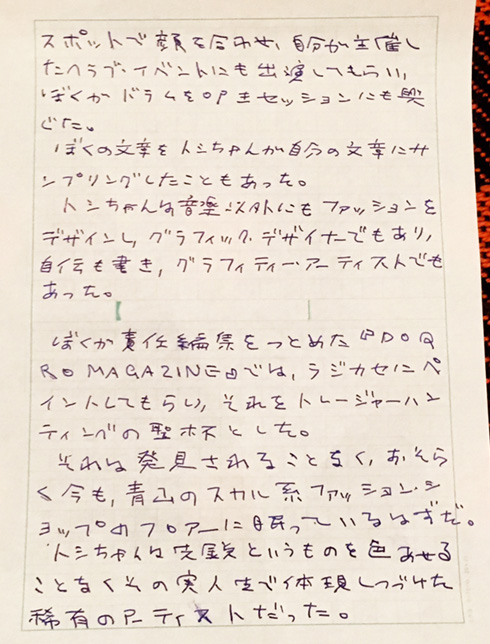 スポットで顔を合わせ、自分が主催し
たクラブ・イベントにも出演してもらい、
ぼくがドラムを叩きセッションにも興
じた。
ぼくの文章をトシちゃんが自分の文章にサ
ンプリングしたこともあった。
トシちゃんは音楽以外にもファッションを
デザインし、グラフィック・デザイナーでもあり、
自伝も書き、グラフィティー・アーティストでも
あった。
ぼくが責任編集をつとめた『DOQ
RO MAGAZINE』では、ラジカセにペ
イントしてもらい、それをトレージャーハン
ティングの聖杯とした。
それは発見されることなく、おそら
く今も、青山のスカル系ファッション・シ
ョップのフロアーに眠っているはずだ。
トシちゃんは実験というものを色あせる
ことなくその実人生で体現しつづけた
稀有のアーティストだった。